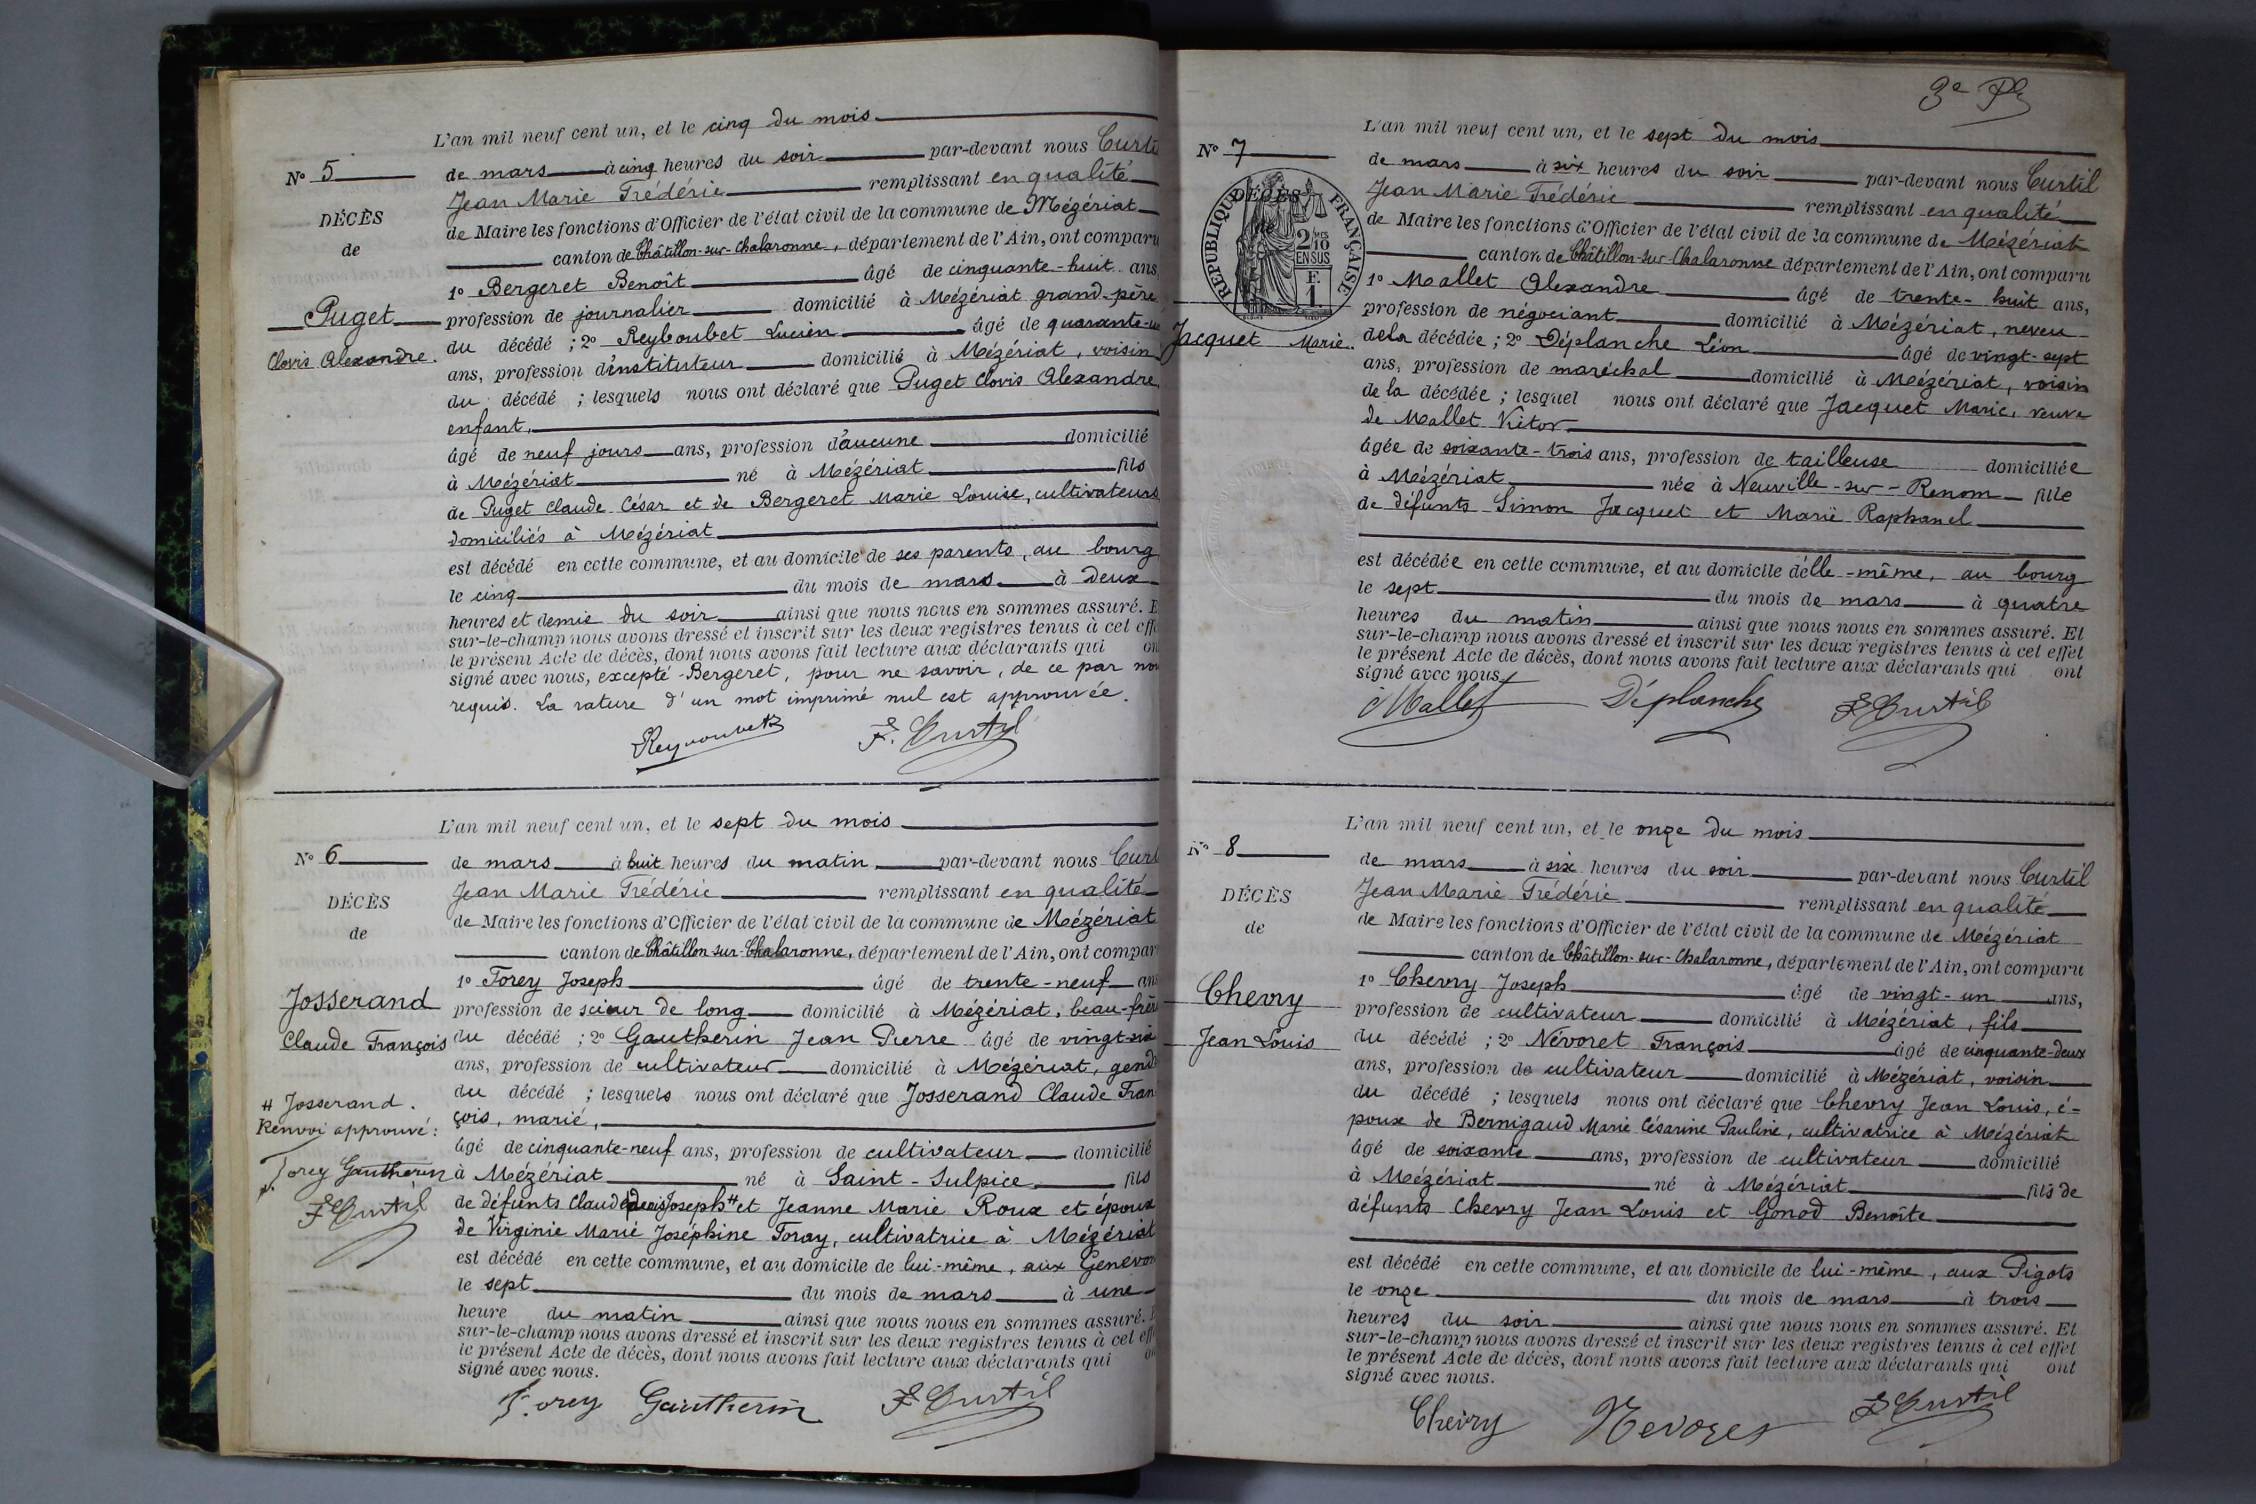 L'an mil neuf cent un, et le cinq du mois
N° 5
de mars à cinq heures du soir par-devant nous
Jean Marie Frédéric remplissant en qualité
DÉCÈS
de Maire les fonctions d'Officier de l'état civil de la commune de Mézériat
de
canton de Châtillon-sur-Chalaronne, département de l'Ain, ont comparu
1° Bergeret Benoît âgé de cinquante-huit ans,
Puget
profession de journalier domicilié à Mézériat grand-père
du décédé ; 2° Reyboubet Lucien âgé de
Clovis Alexandre.
ans, profession d'instituteur domicilié à Mézériat, voisin
du décédé ; lesquels nous ont déclaré que Puget Clovis Alexandre,
enfant,
âgé de neuf jours ans, profession d'aucune domicilié
à Mézériat né à Mézériat fils
de Puget Claude César et de Bergeret Marie Louise, cultivateurs
domiciliés à Mézériat
est décédé en cette commune, et au domicile de ses parents, au bourg
le cinq du mois de mars à deux
heures et demie du soir ainsi que nous nous en sommes assuré.
sur-le-champ nous avons dressé et inscrit sur les deux registres tenus à cet
le présent Acte de décès, dont nous avons fait lecture aux déclarants qui
signé avec nous, excepté Bergeret, pour ne savoir, de ce par nous
requis. La rature d'un mot imprimé nul est approuvée.
F. Curtil
L'an mil neuf cent un, et le sept du mois
N° 6
de mars à huit heures du matin par-devant nous
Jean Marie Frédéric remplissant en qualité
DÉCÈS
de Maire les fonctions d'Officier de l'état civil de la commune de Mézériat
de
canton de Châtillon-sur-Chalaronne, département de l'Ain, ont
1° Forey Joseph âgé de trente-neuf ans
Josserand
profession de scieur de long domicilié à Mézériat, beau-frère
Claude François
du décédé ; 2° Gautherin Jean Pierre âgé de
ans, profession de cultivateur domicilié à Mézériat,
du décédé ; lesquels nous ont déclaré que Josserand Claude Fran
# Josserand.
çois, marié,
Renvoi approuvé :
âgé de cinquante-neuf ans, profession de cultivateur domicilié
Forey Gautherin
à Mézériat né à Saint-Sulpice fils
F. Curtil
de défunts Claude Joseph # et Jeanne Marie Roux et époux
de Virginie Marie Joséphine Foray, cultivatrice à Mézériat
est décédé en cette commune, et au domicile de lui-même, aux
le sept du mois de mars à une
heure du matin ainsi que nous nous en sommes assuré.
sur-le-champ nous avons dressé et inscrit sur les deux registres tenus à cet
le présent Acte de décès, dont nous avons fait lecture aux déclarants qui
signé avec nous.
Forey Gautherin F. Curtil
L'an mil neuf cent un, et le sept du mois
N° 7
de mars à six heures du soir par-devant nous Curtil
Jean Marie Frédéric remplissant en qualité
DÉCÈS
de
RÉPUBLIQUE FRANÇAISE
2/10
EN SUS
F.
1.
de Maire les fonctions d'Officier de l'état civil de la commune de Mézériat
canton de Châtillon-sur-Chalaronne département de l'Ain, ont comparu
1° Mallet Alexandre âgé de trente-huit ans,
profession de négociant domicilié à Mézériat, neveu
Jacquet Marie.
de la décédée ; 2° Déplanche Léon âgé de vingt-sept
ans, profession de maréchal domicilié à Mézériat, voisin
de la décédée ; lesquel nous ont déclaré que Jacquet Marie, veuve
de Mallet Victor
âgée de soixante-trois ans, profession de tailleuse domiciliée
à Mézériat née à Neuville-sur-Renom fille
de défunts Simon Jacquet et Marie Raphanel
est décédée en cette commune, et au domicile d'elle-même, au bourg
le sept du mois de mars à quatre
heures du matin ainsi que nous nous en sommes assuré. Et
sur-le-champ nous avons dressé et inscrit sur les deux registres tenus à cet effet
le présent Acte de décès, dont nous avons fait lecture aux déclarants qui ont
signé avec nous.
Mallet Déplanche F. Curtil
L'an mil neuf cent un, et le onze du mois
N° 8
de mars à six heures du soir par-devant nous Curtil
Jean Marie Frédéric remplissant en qualité
DÉCÈS
de Maire les fonctions d'Officier de l'état civil de la commune de Mézériat
de
canton de Châtillon-sur-Chalaronne, département de l'Ain, ont comparu
1° Chevry Joseph âgé de vingt-un ans,
Chevry
profession de cultivateur domicilié à Mézériat, fils
Jean Louis
du décédé ; 2° Névoret François âgé de cinquante-deux
ans, profession de cultivateur domicilié à Mézériat, voisin
du décédé ; lesquels nous ont déclaré que Chevry Jean Louis, é-
poux de Bernigaud Marie Césarine Pauline, cultivatrice à Mézériat
âgé de soixante ans, profession de cultivateur domicilié
à Mézériat né à Mézériat fils de
défunts Chevry Jean Louis et Gonod Benoîte
est décédé en cette commune, et au domicile de lui-même, aux Pigots
le onze du mois de mars à trois
heures du soir ainsi que nous nous en sommes assuré. Et
sur-le-champ nous avons dressé et inscrit sur les deux registres tenus à cet effet
le présent Acte de décès, dont nous avons fait lecture aux déclarants qui ont
signé avec nous.
Chevry F. Curtil